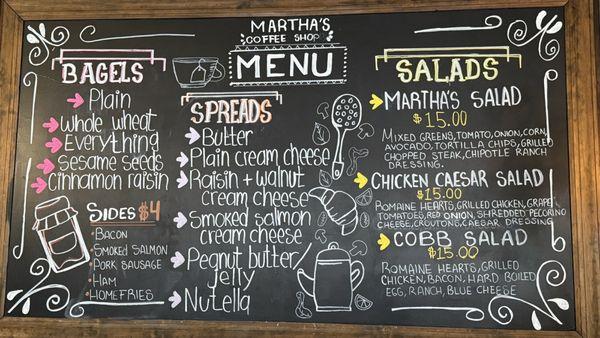 MARTHA'S
COFFEE SHOP
MENU
BAGELS
Plain
Whole wheat
Everything
Sesame seeds
Cinnamon raisin
SIDES $4
BACON
SMOKED SALMON
PORK SAUSAGE
HAM
HOMEFRIES
SPREADS
Butter
Plain cream cheese
Raisin + walnut
cream cheese
Smoked salmon
cream cheese
Peanut butter
Jelly
Nutella
SALADS
MARTHA'S SALAD
$15.00
MIXED GREENS, TOMATO, ONION, CORN,
AVOCADO, TORTILLA CHIPS, GRILLED
CHOPPED STEAK, CHIPOTLE RANCH
DRESSING.
CHICKEN CAESAR SALAD
$15.00
ROMAINE HEARTS, GRILLED CHICKEN, GRAPE
TOMATOES, RED ONION, SHREDDED PECORINO
CHEESE, CROUTONS, CAESAR DRESSING
COBB SALAD
$15.00
ROMAINE HEARTS, GRILLED
CHICKEN, BACON, HARD BOILED
EGG, RANCH, BLUE CHEESE